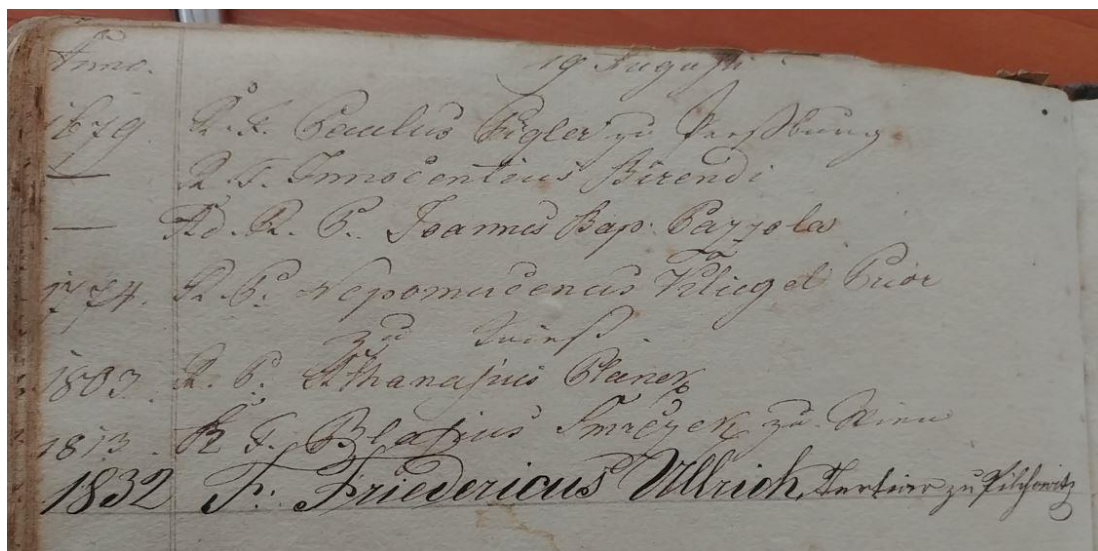 Anno. 19 Augusti
1679 R. F. Paulus Figler zu Presßburg.
— R. F. Innocentius Birendi
— Ad. R. P. Joannes Bap. Pazzola
1774. R. P. Nepomucenus Kliegel Prior
zu
1803. R. P. Athanasius Planer
1813. R F. Blasius zu Wien
1832 F. Friedericus Ullrich, Tertier zu Pilchowitz